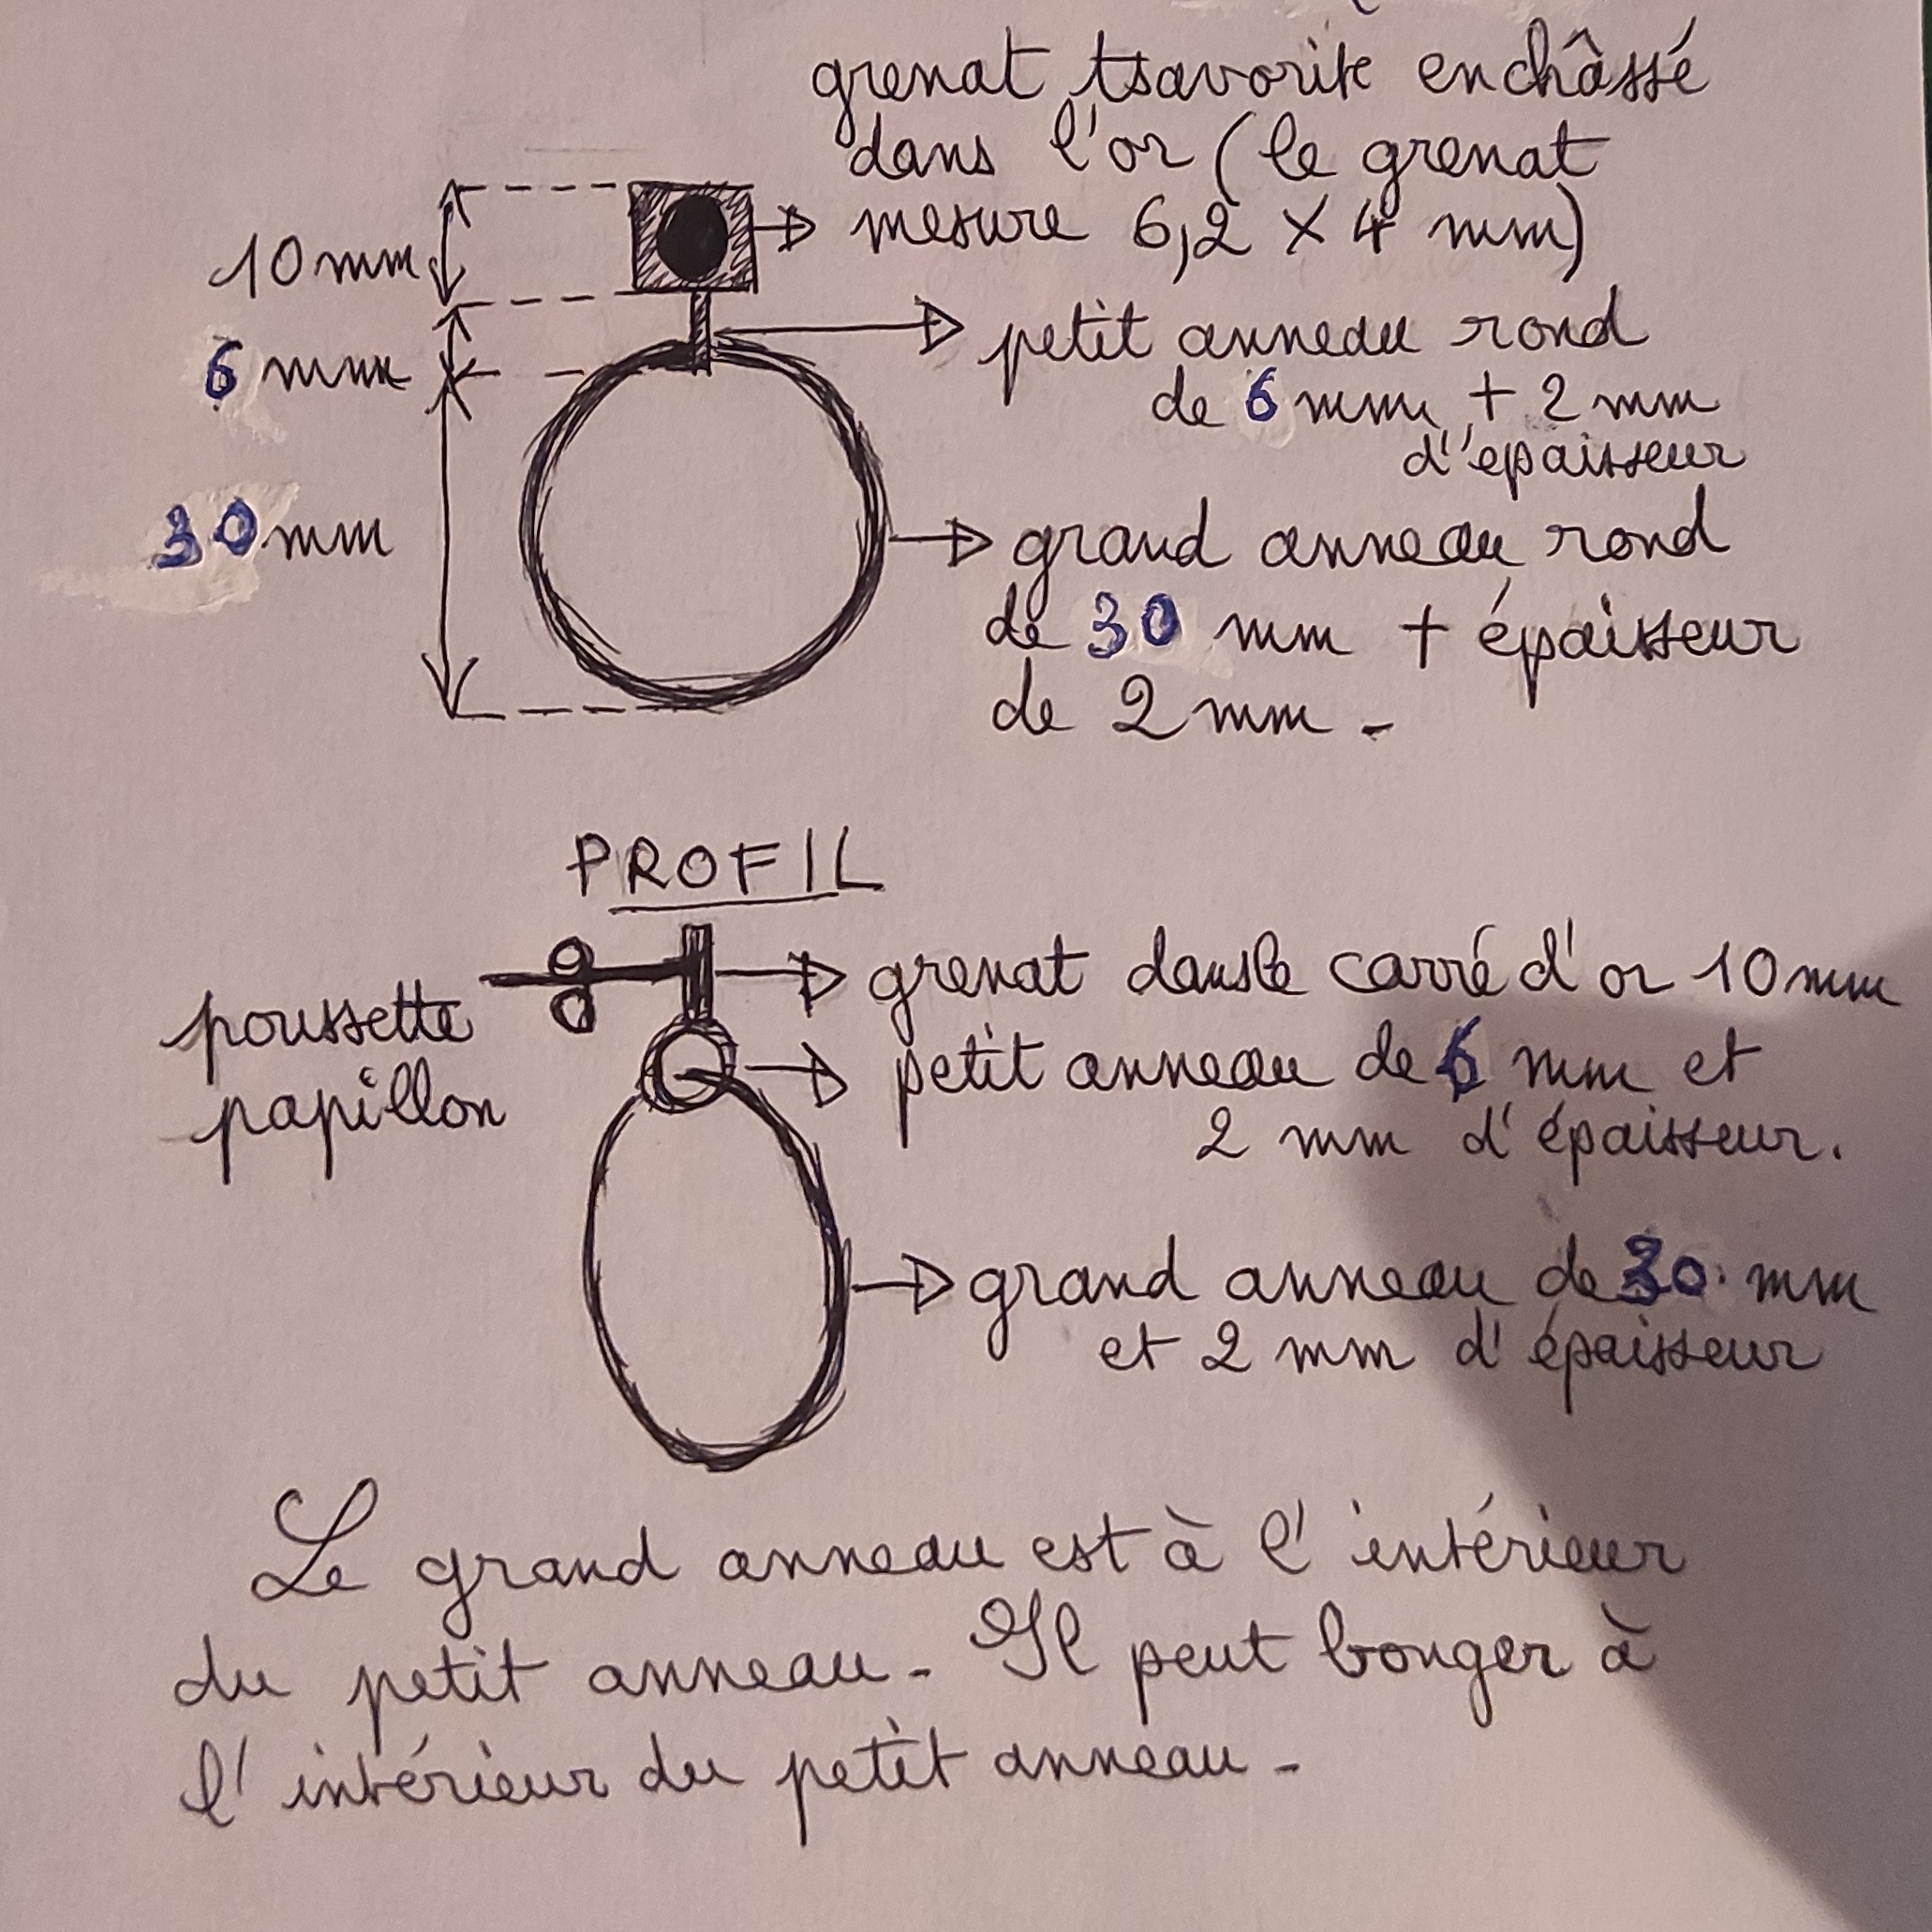 grenat tsavorite enchâssé
dans l'or (le grenat
mesure 6,2 X 4 mm)
10 mm
petit anneau rond
de 6 mm + 2 mm
d'épaisseur
6 mm
grand anneau rond
de 30 mm + épaisseur
de 2 mm -
30 mm
PROFIL
grenat dans le carré d'or 10 mm
poussette
papillon
petit anneau de 6 mm et
2 mm d'épaisseur.
grand anneau de 30 mm
et 2 mm d'épaisseur
Le grand anneau est à l'intérieur
du petit anneau - Il peut bouger à
l'intérieur du petit anneau -